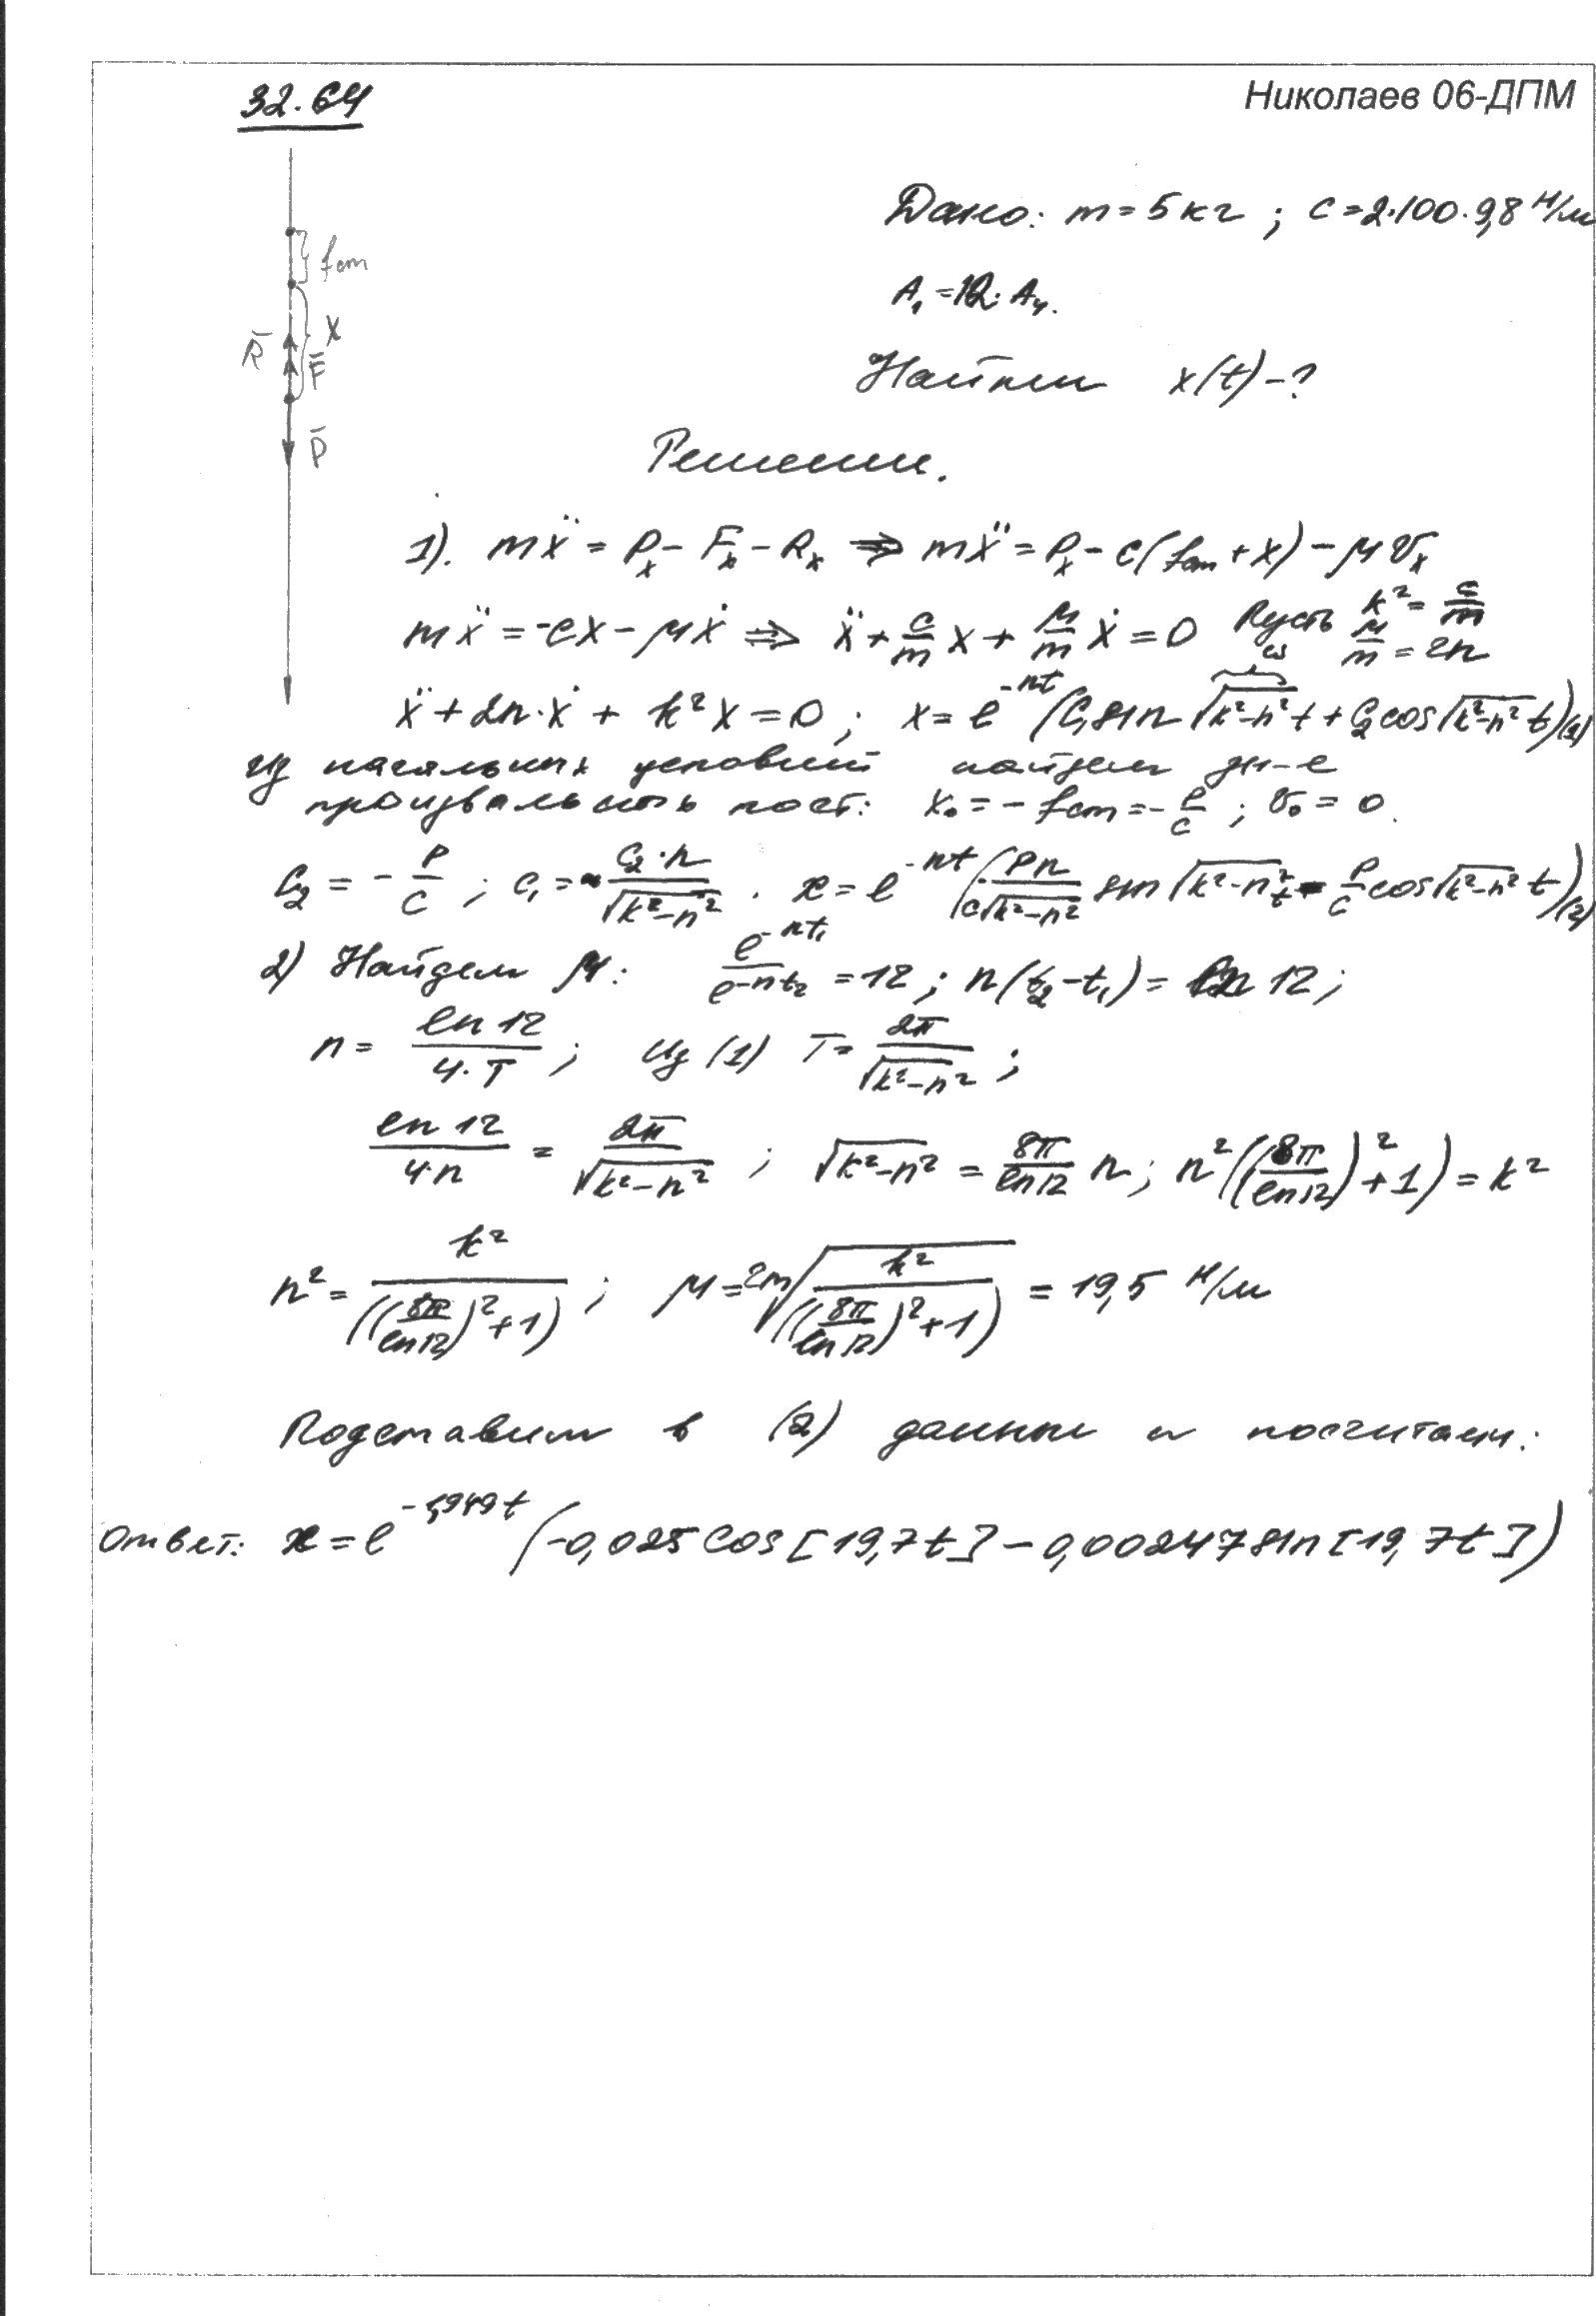 32.64
Николаев 06-ДПМ
Дано: m = 5 кг ; c = 2·100·9,8 Н/м
A₁ = 12·A₄.
Найти x(t) - ?
fст
x
R̄
F̄
P̄
Решение.
1). mẍ = Pₓ - Fₓ - Rₓ ⇒ mẍ = Pₓ - c(fст + x) - μVₓ
mẍ = -cx - μẋ ⇒ ẍ + c/m x + μ/m ẋ = 0 Пусть k² = c/m μ/m = 2n
ẍ + 2n·ẋ + k²x = 0 ; x = e^(-nt) (C₁ sin √(k²-n²) t + C₂ cos √(k²-n²) t) (1)
ω
Из начальных условий найдем
произвольность пост: x₀ = - fст = - P/c ; V₀ = 0.
C₂ = - P/c ; C₁ = C₂·n/√(k²-n²) . x = e^(-nt) (- Pn/(c√(k²-n²)) sin √(k²-n²) t - P/c cos √(k²-n²) t) (2)
2) Найдем μ: e^(-nt₁)/e^(-nt₂) = 12 ; n(t₂-t₁) = ln 12 ;
n = ln 12/(4·T) ; Из (1) T = 2π/√(k²-n²) ;
ln 12/(4·n) = 2π/√(k²-n²) ; √(k²-n²) = 8π/ln 12 n ; n²((8π/ln 12)² + 1) = k²
n² = k²/((8π/ln 12)² + 1) ; μ = 2m √(k²/((8π/ln 12)² + 1)) = 19,5 Н/м
Подставим в (2) данные и посчитаем:
Ответ: x = e^(-1,949t) (-0,025 cos [19,7t] - 0,00247 sin [19,7t])